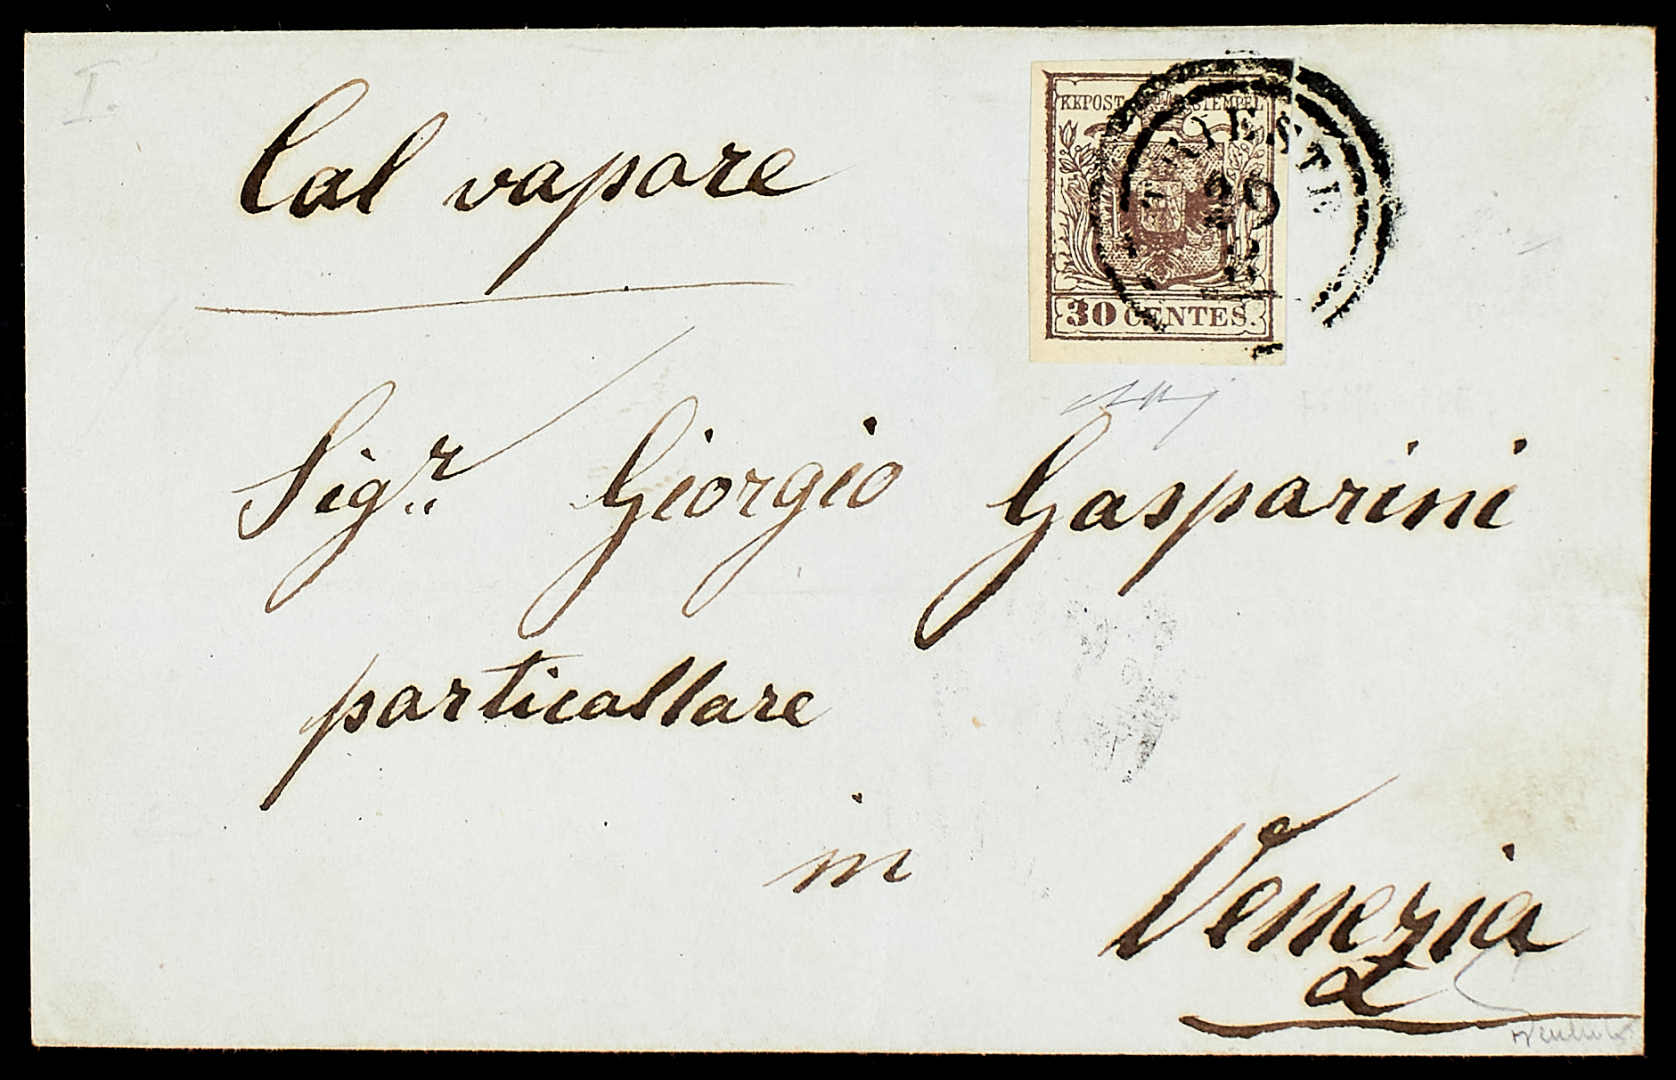 I.
Cal vapore
KKPOST STEMPEL
TRIESTE
30 CENTES.
Sigr. Giorgio Gasparini
particallare
in
Venezia